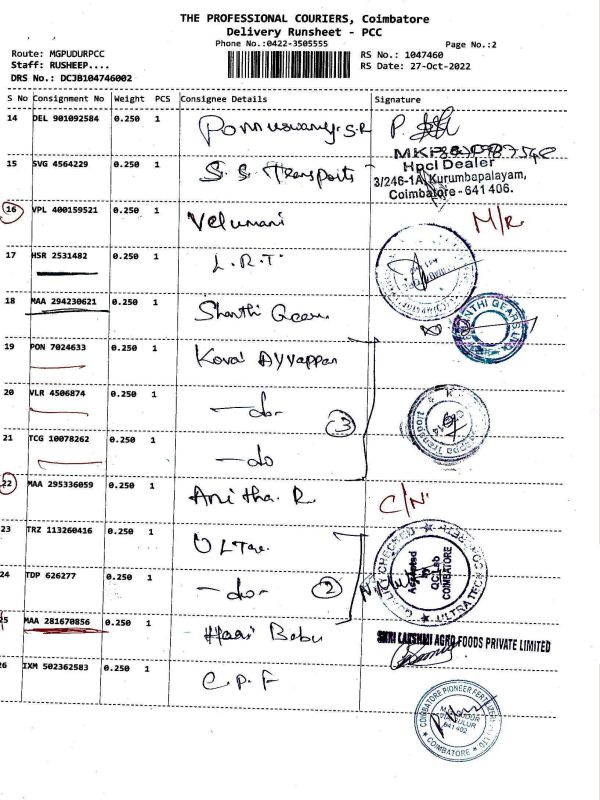 THE PROFESSIONAL COURIERS, Coimbatore
Delivery Runsheet - PCC
Phone No.:0422-3505555
Page No.:2
Route: MGPUDURPCC
Staff: RUSHEEP....
DRS No.: DCJB104746002
RS No.: 1047460
RS Date: 27-Oct-2022
S No Consignment No Weight PCS Consignee Details Signature
14 DEL 901092584 0.250 1 Ponnuswamy.S.R
15 SVG 4564229 0.250 1 S.S. Transports
Hpcl Dealer
3/246-1A, Kurumbapalayam,
Coimbatore - 641 406.
16 VPL 400159521 0.250 1 Velumani M/R
17 HSR 2531482 0.250 1 L.R.T.
18 MAA 294230621 0.250 1 Shanthi Gears
SHANTHI GEARS
19 PON 7024633 0.250 1 Kovai Ayyappan
20 VLR 4506874 0.250 1 —do— 3
21 TCG 10078262 0.250 1 —do
22 MAA 295336059 0.250 1 Anitha.R C/N.
23 TRZ 113260416 0.250 1 ULTra
24 TDP 626277 0.250 1 —do— 2
CHECKED
Accepted
by
QC Lab
COIMBATORE
ULTRA TECH
25 MAA 281670856 0.250 1 Hari Babu
SHRI LAKSHMI AGRO FOODS PRIVATE LIMITED
26 IXM 502362583 0.250 1 C.P.F
COIMBATORE PIONEER
641 402
COIMBATORE